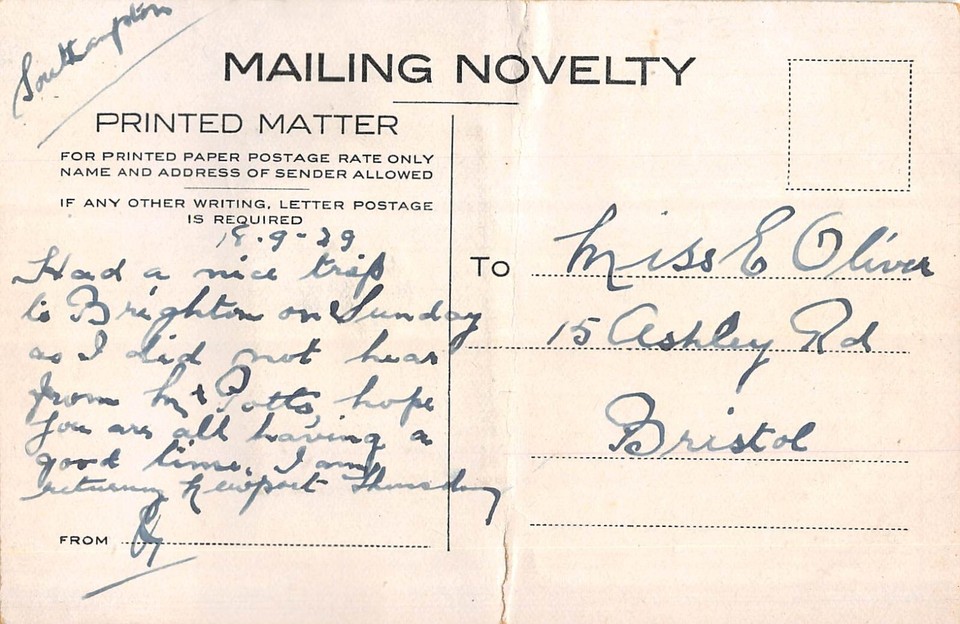 Southampton
MAILING NOVELTY
PRINTED MATTER
FOR PRINTED PAPER POSTAGE RATE ONLY
NAME AND ADDRESS OF SENDER ALLOWED
IF ANY OTHER WRITING, LETTER POSTAGE
IS REQUIRED
18.9.29
Had a nice trip
to Brighton on Sunday
as I did not hear
from Mr Potts, hope
you are all having a
good time. I am
returning Newport Thursday
FROM
TO Miss E Oliver
15 Ashley Rd
Bristol